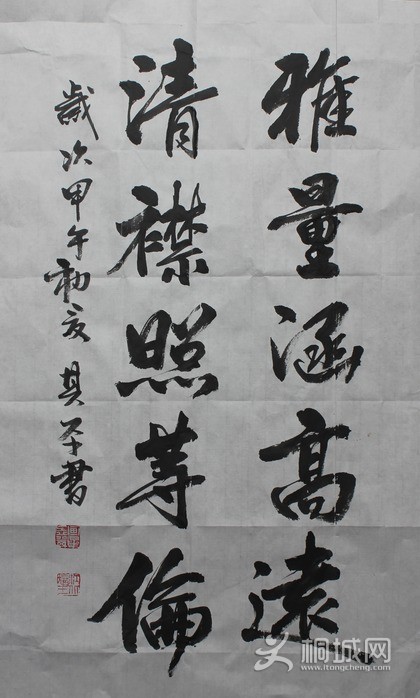 雅量涵高遠
清襟照等倫
歲次甲午初夏 其平書
桐城网
www.itongcheng.com